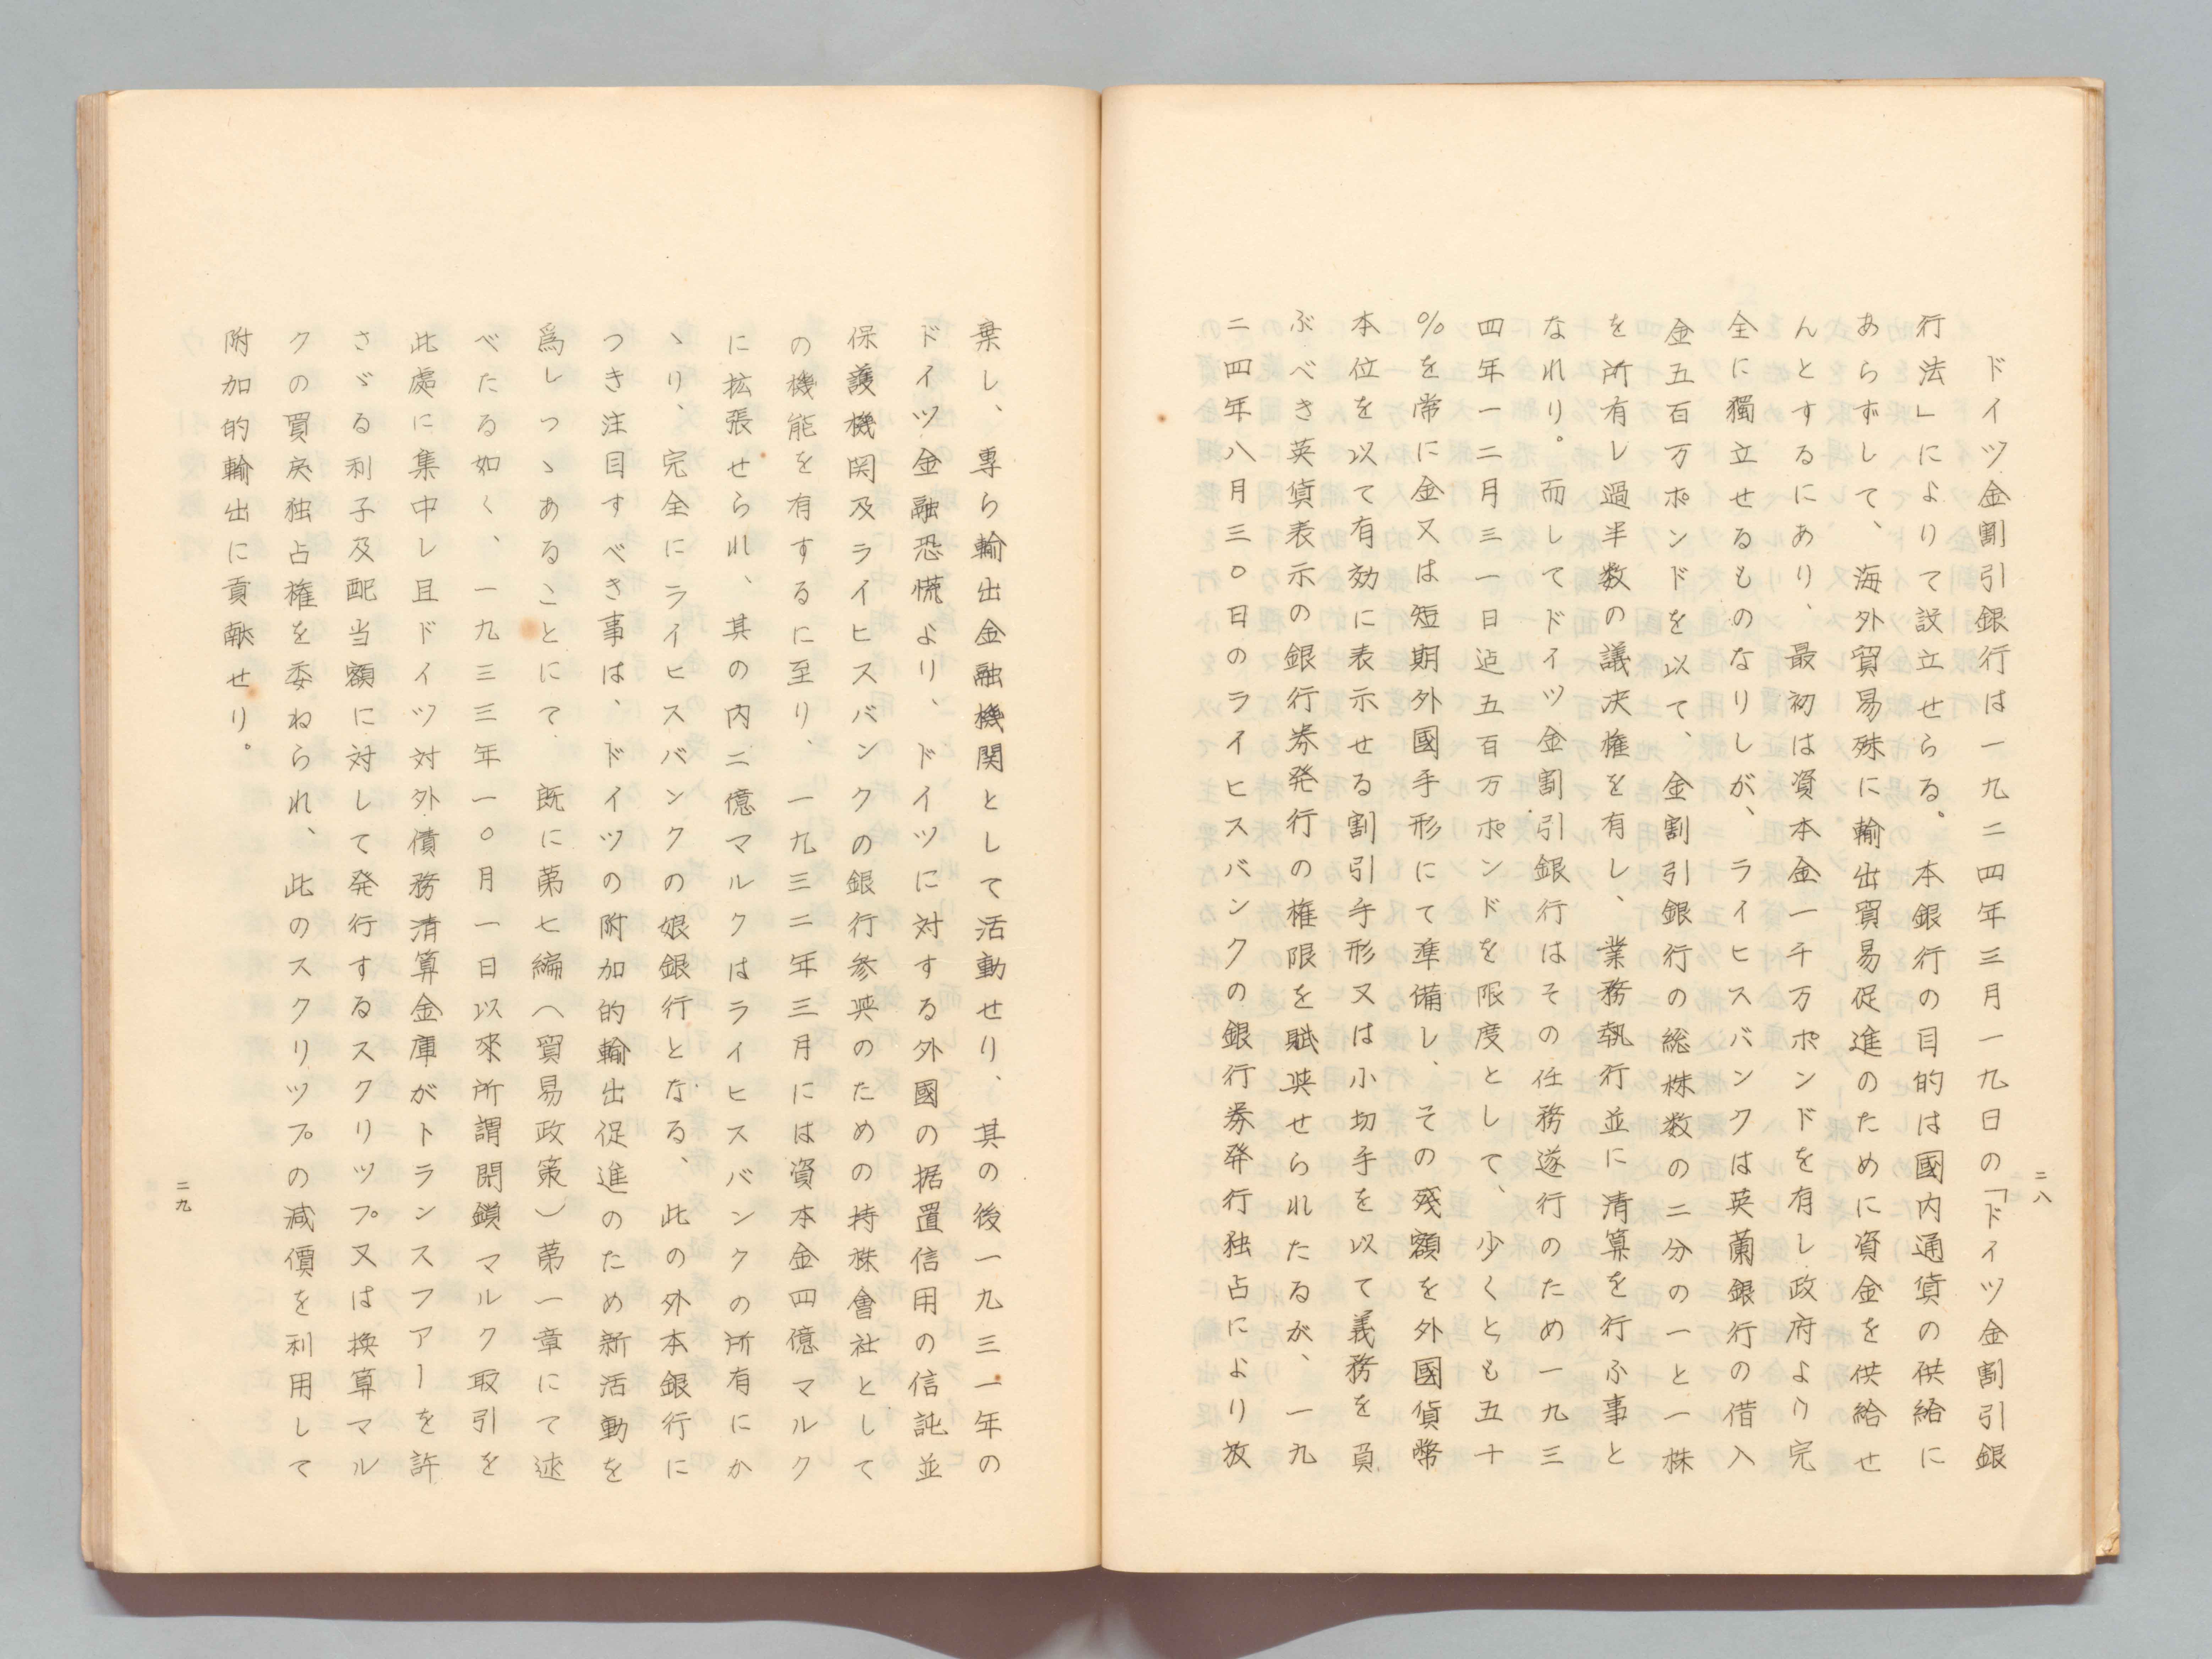 二八
ドイツ金割引銀行は一九二四年三月一九日の「ドイツ金割引銀
行法」によりて設立せらる。本銀行の目的は國内通貨の供給に
あらずして、海外貿易殊に輸出貿易促進のために資金を供給せ
んとするにあり、最初は資本金一千万ポンドを有し政府より完
全に獨立せるものなりしが、ライヒスバンクは英蘭銀行の借入
金五百万ポンドを以て、金割引銀行の総株数の二分の一と一株
を所有し過半数の議決権を有し、業務執行並に清算を行ふ事と
なれり。而してドイツ金割引銀行はその任務遂行のため一九三
四年一二月三一日迠五百万ポンドを限度として、少くとも五十
％を常に金又は短期外國手形にて準備し、その残額を外國貨幣
本位を以て有効に表示せる割引手形又は小切手を以て義務を負
ぶべき英貨表示の銀行券発行の権限を賦与せられたるが、一九
二四年八月三〇日のライヒスバンクの銀行券発行独占により放
棄し、専ら輸出金融機関として活動せり、其の後一九三一年の
ドイツ金融恐慌より、ドイツに対する外國の据置信用の信託並
保護機関及ライヒスバンクの銀行参与のための持株會社として
の機能を有するに至り、一九三二年三月には資本金四億マルク
に拡張せられ、其の内二億マルクはライヒスバンクの所有にか
ゝり、完全にライヒスバンクの娘銀行となる、此の外本銀行に
つき注目すべき事は、ドイツの附加的輸出促進のため新活動を
爲しつゝあることにて、既に第七編（貿易政策）第一章にて述
べたる如く、一九三三年一〇月一日以來所謂閉鎖マルク取引を
此處に集中し且ドイツ対外債務清算金庫がトランスフアーを許
さゞる利子及配当額に対して発行するスクリップ又は換算マル
クの買戻独占権を委ねられ、此のスクリップの減價を利用して
附加的輸出に貢献せり。
二九